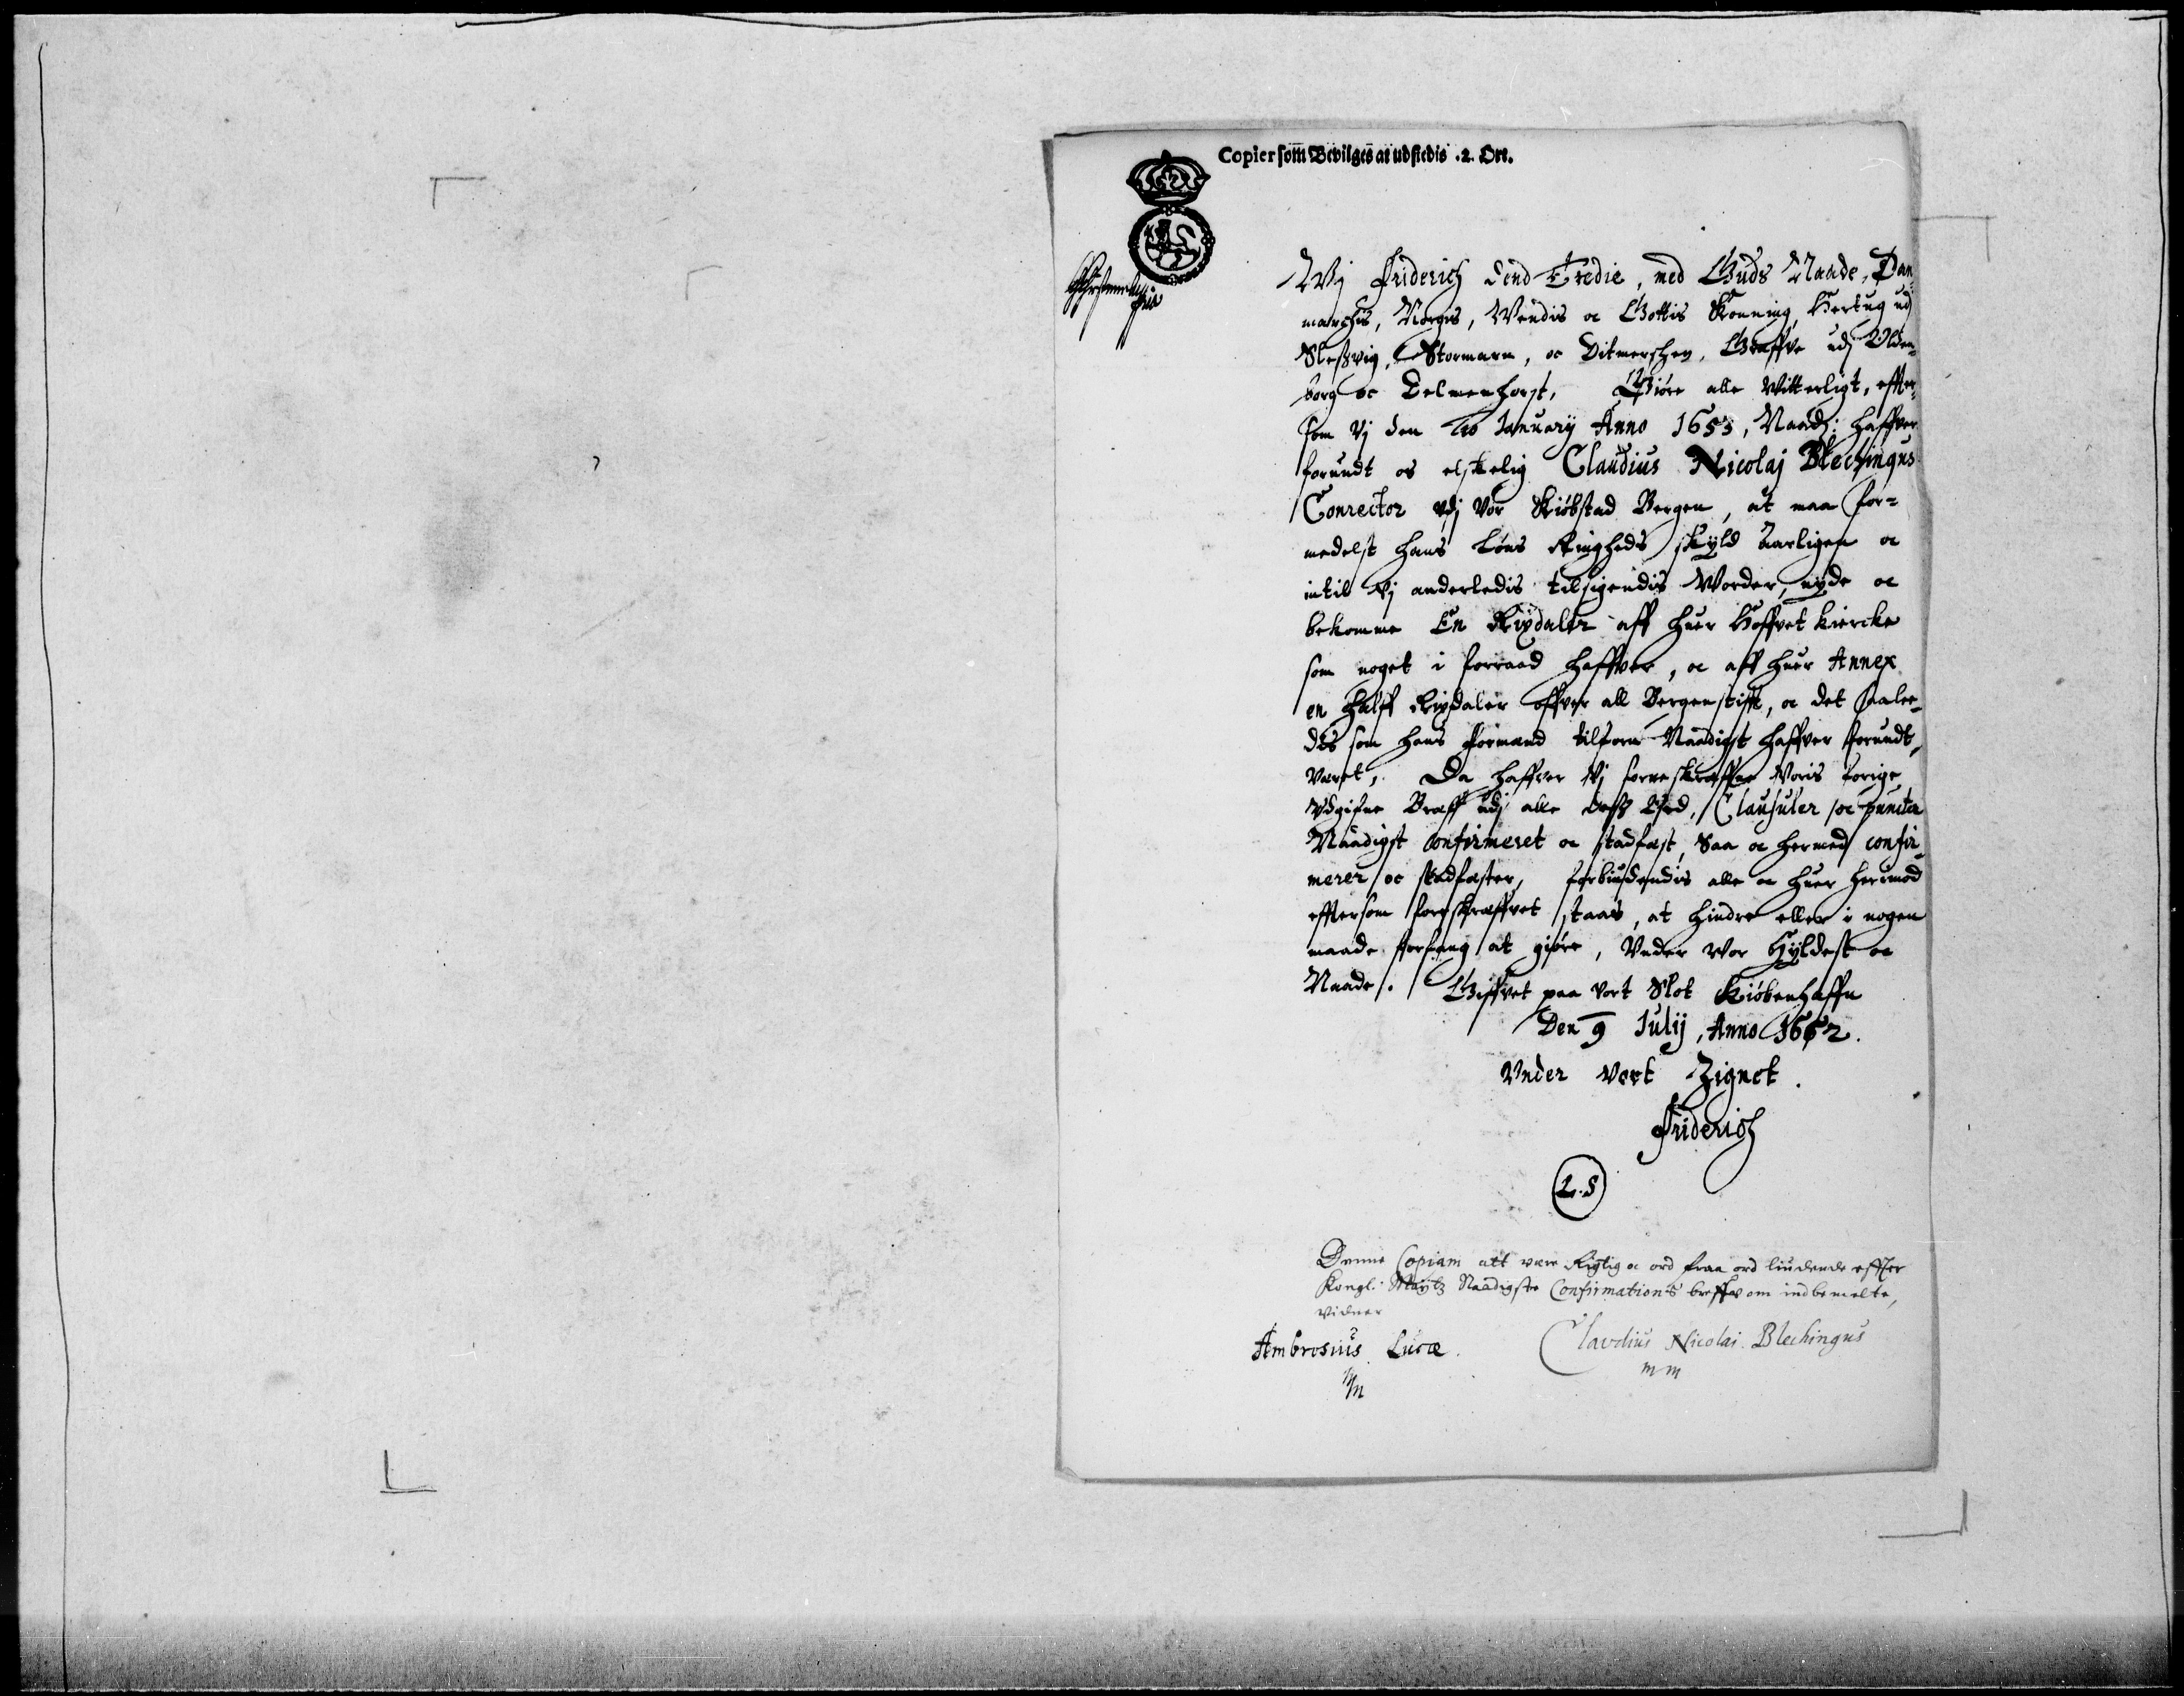 Copier som Bevilges at udstedis .2. Ort.
Wj Friderich dend Tredie, med Guds Naade, Dan¬
marchis, Norgis, Wendis oc Gottis Konning, Hertug udj
Sleßvig, Stormarn, oc Ditmerschen, Graffve udj Olden¬
borg oc Delmenhorst, Giøre alle Witterligt, effter¬
som Vj den 20 January Anno 1653, Naadj: haffver
forundt os elskelig Claudius Nicolaj Blechingus
Conrector vdj Vor Kiøbstad Bergen, at maa for=
medelst hans Løns Ringheds skyld aarligen oc
intil Vj anderledis tilsigendis Worder, nyde oc
bekomme En Rixdaler aff huer Hoffvet kiercke
som noget i forraad haffver, oc aff huer Annex
en halff Rixdaler offver all Bergenstifft, oc det saalee¬
des som hans formand tilforn Naadigst haffver forundt
veret, Da haffver Vj forneskreffne Voris forige
Vdgifne Breff udj alle deß Ord, Clausuler oc puncter
Naadigst confirmeret oc stadfæst, Saa oc hermed confir¬
merer oc stadfæster, forbiudendis alle oc huer herimod
efftersom forneskreffvet staar, at hindre eller i nogen
maade forfang at giøre, Vnder Vor Hyldest oc
Naade. Giffvet paa Vort Slot Kiøbenhaffn
Den 9 Julij, Anno 1662.
Vnder Vort Zignet.
Friderich
L.S
Denne Copiam att være Rigtig oc ord fraa ord liudende effter
Kongl: Maytz Naadigste Confirmations breff som indbemelte,
vidner
Ambrosius Lucæ. Claudius Nicolai Blechingus
mm